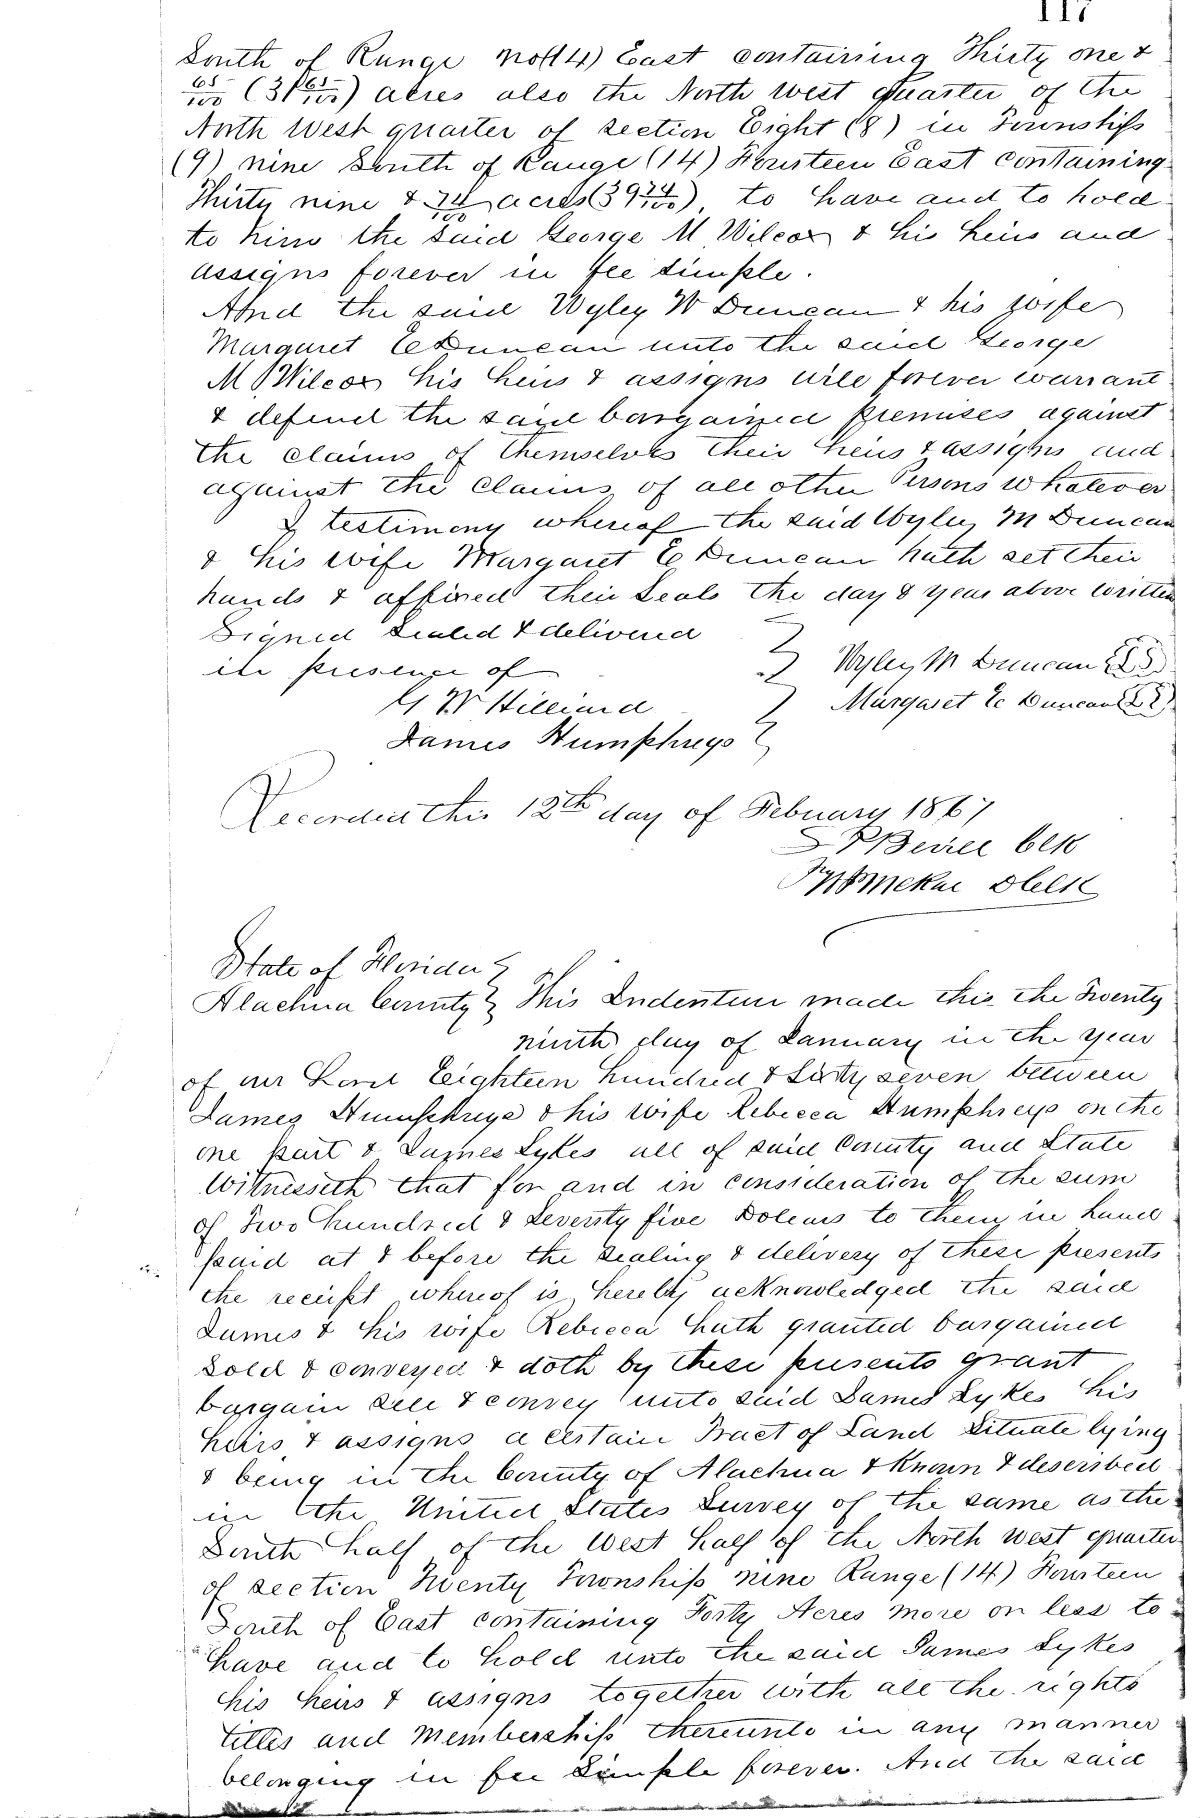 117
South of Range No (14) East containing Thirty one &
65/100 (31 65/100) acres also the North west quarter of the
North West quarter of section Eight (8) in Township
(9) nine South of Range (14) Fourteen East containing
Thirty nine & 74/100 acres (39 74/100), to have and to hold
to him the said George M Wilcox & his heirs and
assigns forever in fee simple.
And the said Wyley W Duncan & his wife
Margaret E Duncan unto the said George
M Wilcox his heirs & assigns will forever warrant
& defend the said bargained premises against
the claims of themselves their heirs & assigns and
against the claims of all other Persons whatever
I testimony whereof the said Wyley M Duncan
& his wife Margaret E Duncan hath set their
hands & affixed their Seals the day & year above written
Signed Sealed & delivered
in presence of
Wyley M Duncan LS
G W Hilliard
Margaret E Duncan LS
James Humphreys
Recorded this 12th day of Febuary 1867
Clk
McKae DClk
State of Florida
Alachua County This Indenture made this the Twenty
ninth day of January in the year
of our Lord Eighteen hundred & Sixty seven between
James Humphreys & his wife Rebecca Humphreys on the
one part & James Sykes all of said County and State
Witnesseth that for and in consideration of the sum
of Two hundred & Seventy five Dolears to them in hand
paid at & before the Sealing & delivery of these presents
the receipt whereof is hereby acknowledged the said
James & his wife Rebecca hath granted bargained
Sold & conveyed & doth by these presents grant
bargain sell & convey unto said James Sykes his
heirs & assigns a certain Tract of Land Situate lying
& being in the County of Alachua & Known & described
in the United States Survey of the same as the
South half of the West half of the North west quarter
of section Twenty Township nine Range (14) Fourteen
South of East containing Forty Acres more or less to
have and to hold unto the said James Sykes
his heirs & assigns together with all the rights
titles and Membership thereunto in any manner
belonging in fee Simple forever. And the said